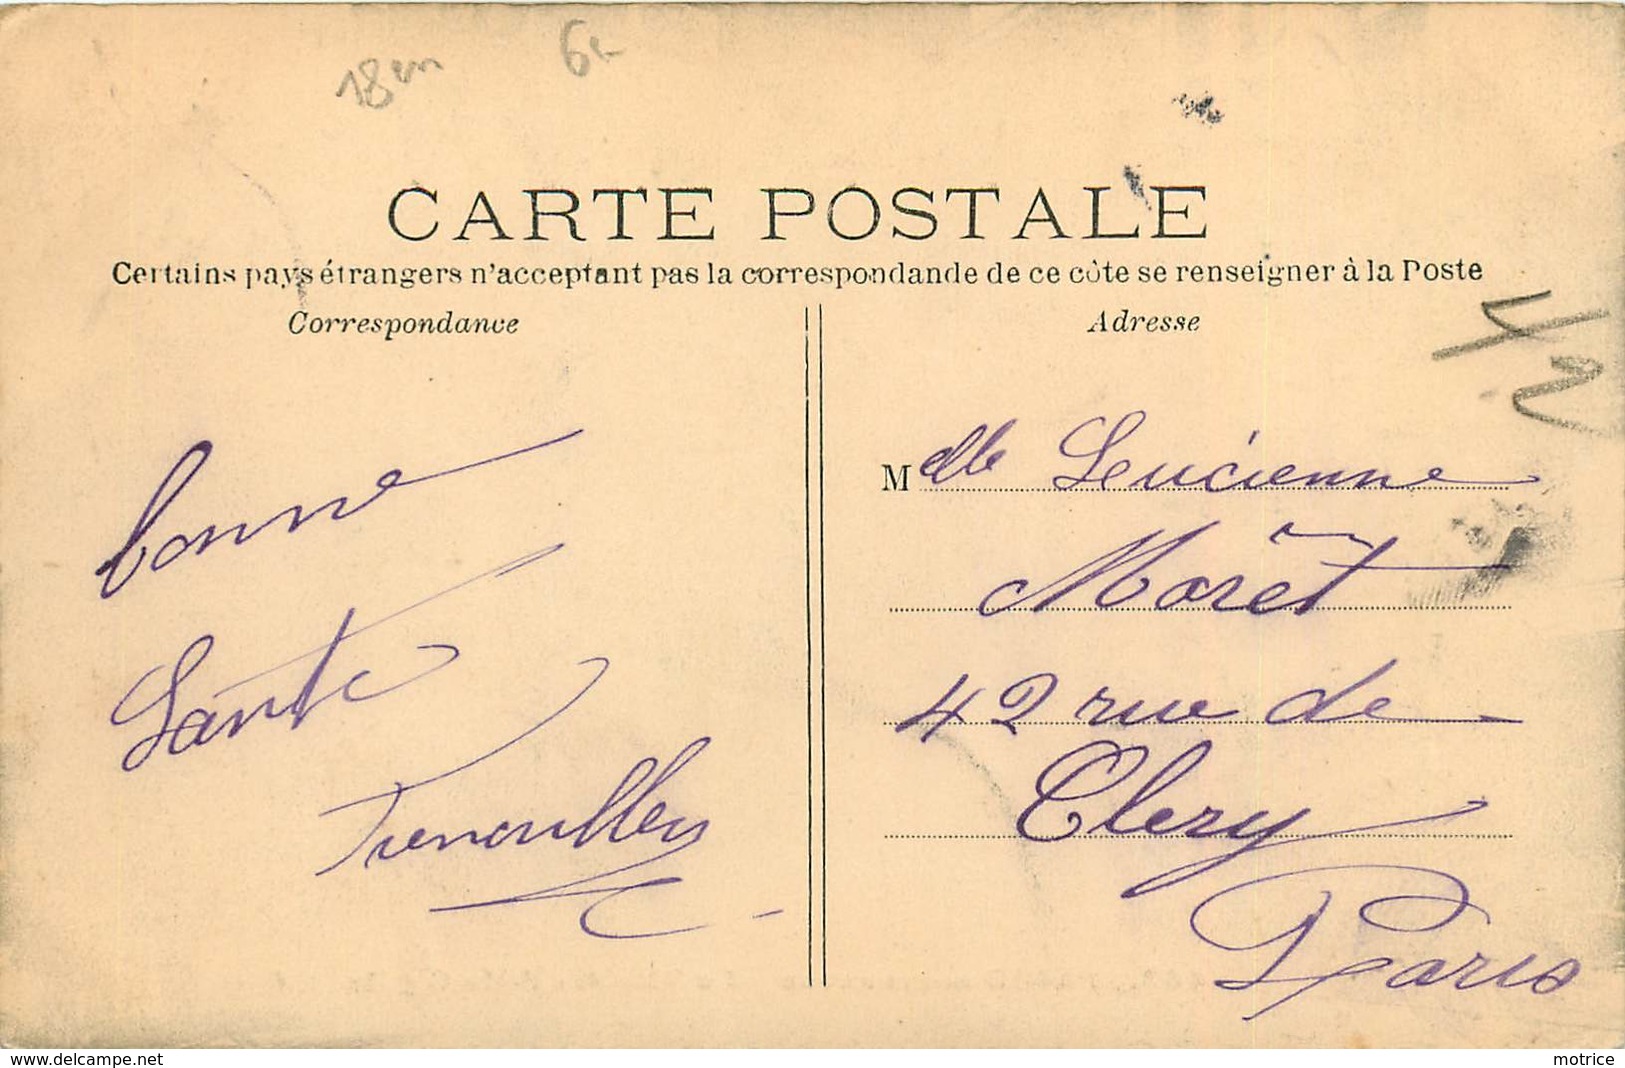 18em
6e
CARTE POSTALE
Certains pays étrangers n'acceptant pas la correspondande de ce côte se renseigner à la Poste
Correspondance
bonne
Santé
Adresse
42
Melle Lucienne
Moret
42 rue de
Clery
Paris
www.delcampe.net
motrice